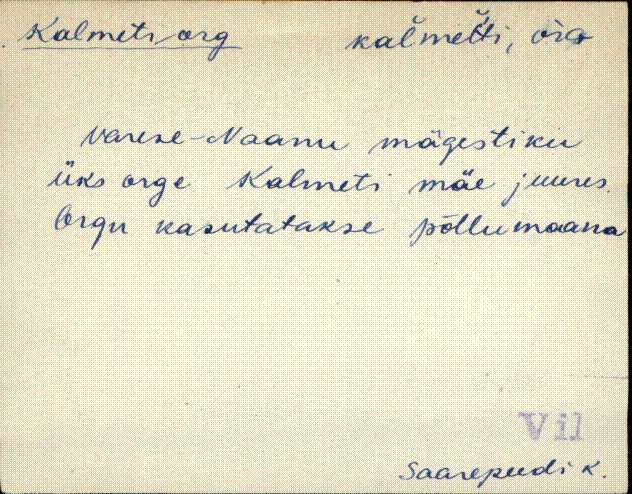 Kalmeti org
Varese-Naanu mägestiku
üks orge Kalmeti mäe juures.
Orgu kasutatakse põllumaana
Vil
Saarepeedi K.